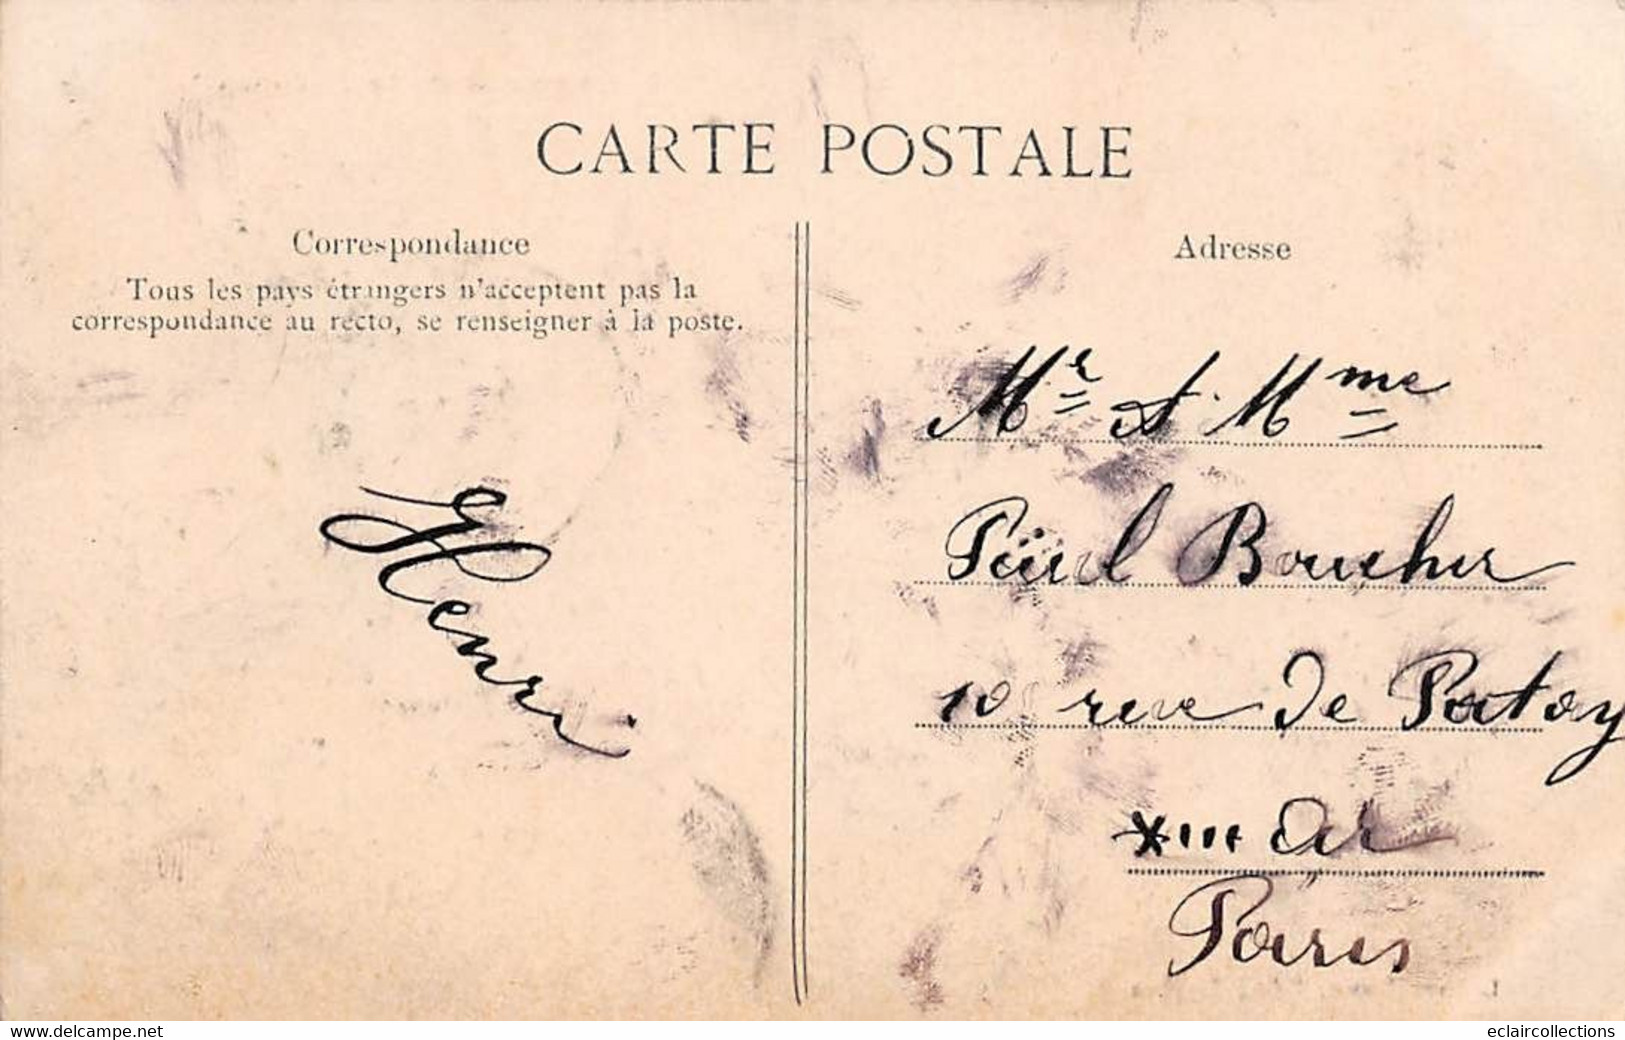 CARTE POSTALE
Correspondance
Tous les pays étrangers n'acceptent pas la
correspondance au recto, se renseigner à la poste.
Henri
Adresse
Mr & Mme
Paul Boucher
10 rue de Patay
XIII Ar
Paris
www.delcampe.net
eclaircollections